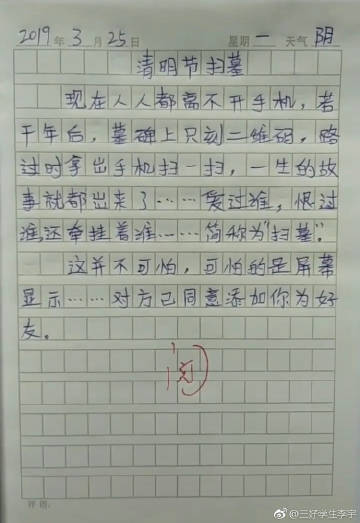 2019年3月25日 星期一 天气阴
清明节扫墓
现在人人都离不开手机，若
干年后，墓碑上只刻二维码，路
过时拿出手机扫一扫，一生的故
事就都出来了……爱过谁，恨过
谁，还牵挂着谁……简称为“扫墓”。
这并不可怕，可怕的是屏幕
显示……对方已同意添加你为好
友。
阅
评语：
@三好学生李宇